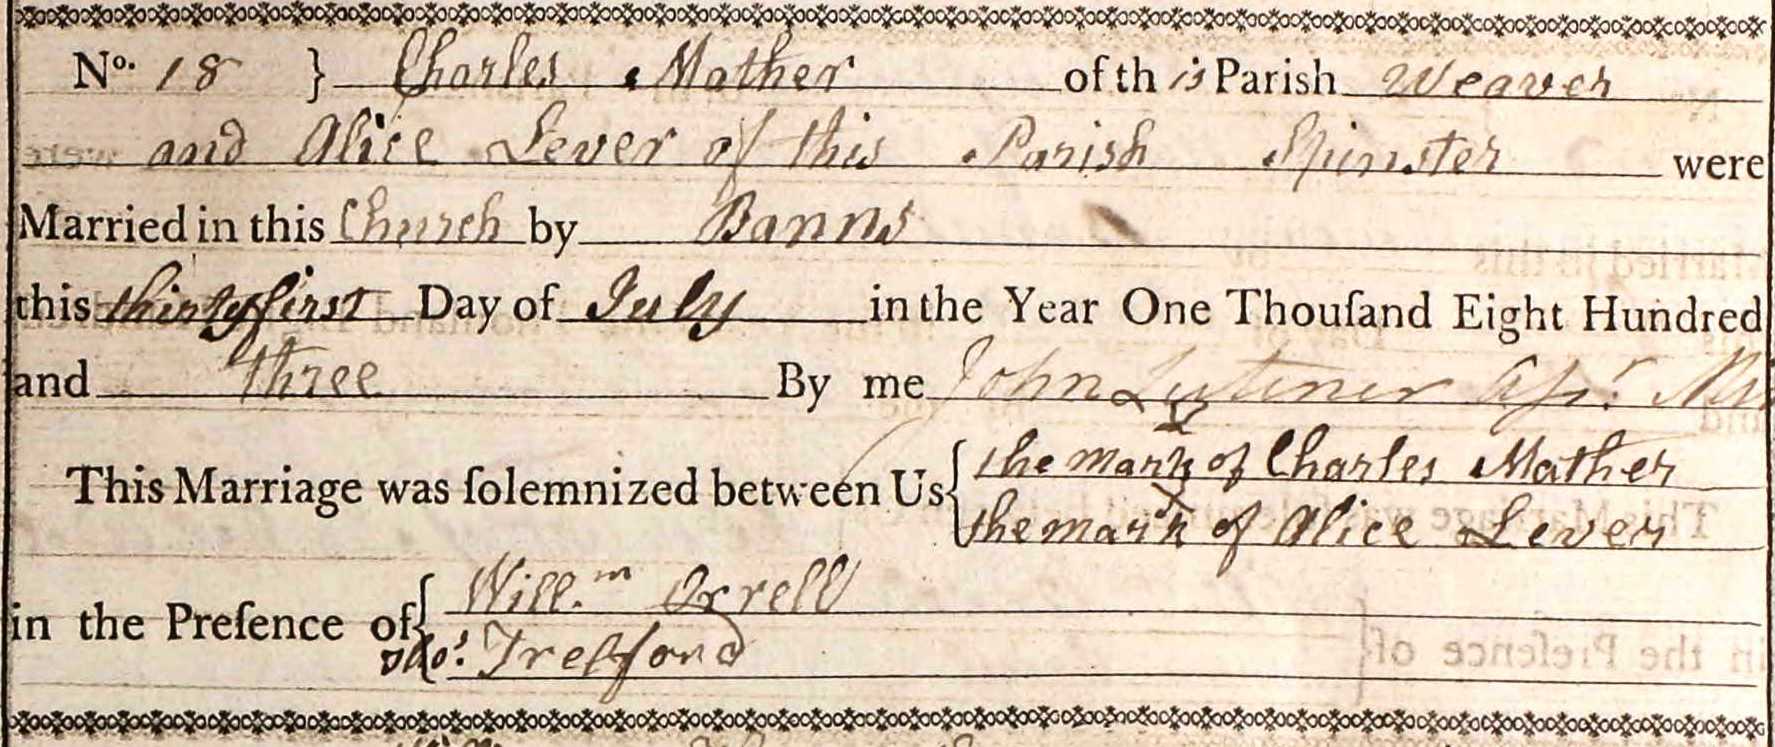 No. 18 } Charles Mather of this Parish Weaver
and Alice Lever of this Parish Spinster were
Married in this Church by Banns
this thirtyfirst Day of July in the Year One Thouſand Eight Hundred
and three By me John
This Marriage was ſolemnized between Us { the mark of Charles Mather
X
the mark of Alice Lever
in the Preſence of { Will.m Orrell
Tho.s Trelford